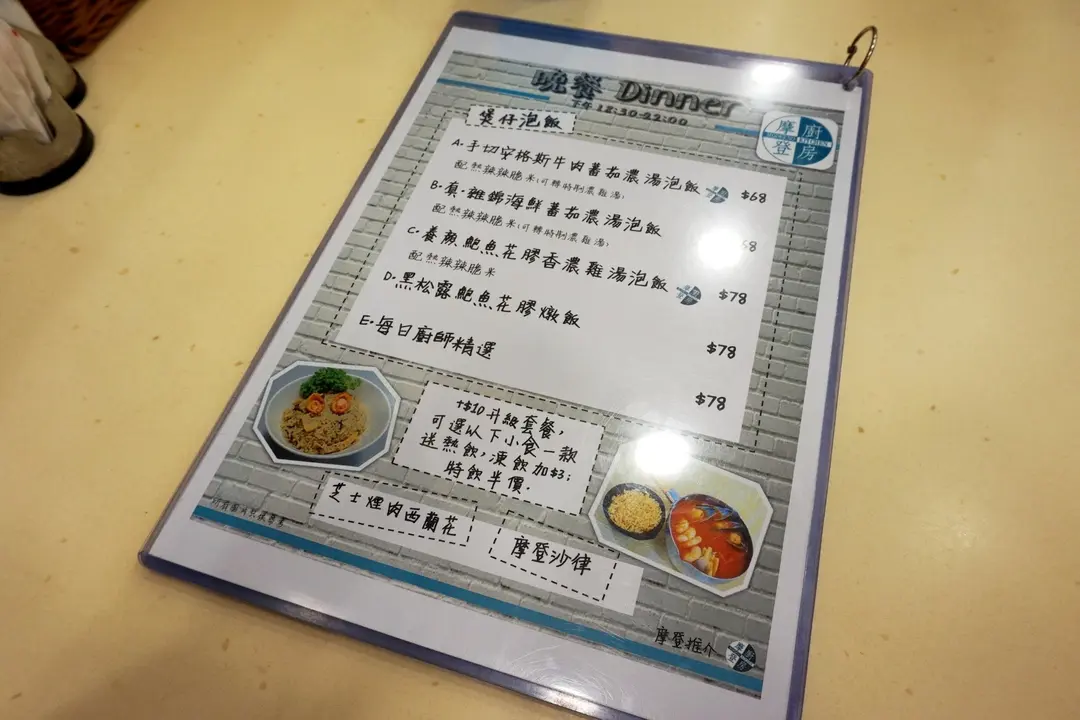 晚餐 Dinner
下午 18:30-22:00
摩登廚房
MODERN KITCHEN
煲仔泡飯
A.手切安格斯牛肉蕃茄濃湯泡飯 $68
配熱辣辣脆米(可轉特別濃雞湯)
B.真.雜錦海鮮蕃茄濃湯泡飯 8
配熱辣辣脆米(可轉特別濃雞湯)
C.養顏鮑魚花膠香濃雞湯泡飯 $78
配熱辣辣脆米
D.黑松露鮑魚花膠燉飯 $78
E.每日廚師精選 $78
+$10升級套餐,
可選以下小食一款
送熱飲,凍飲加$3;
特飲半價.
芝士煙肉西蘭花
摩登沙律
所有圖片只供參考
摩登推介